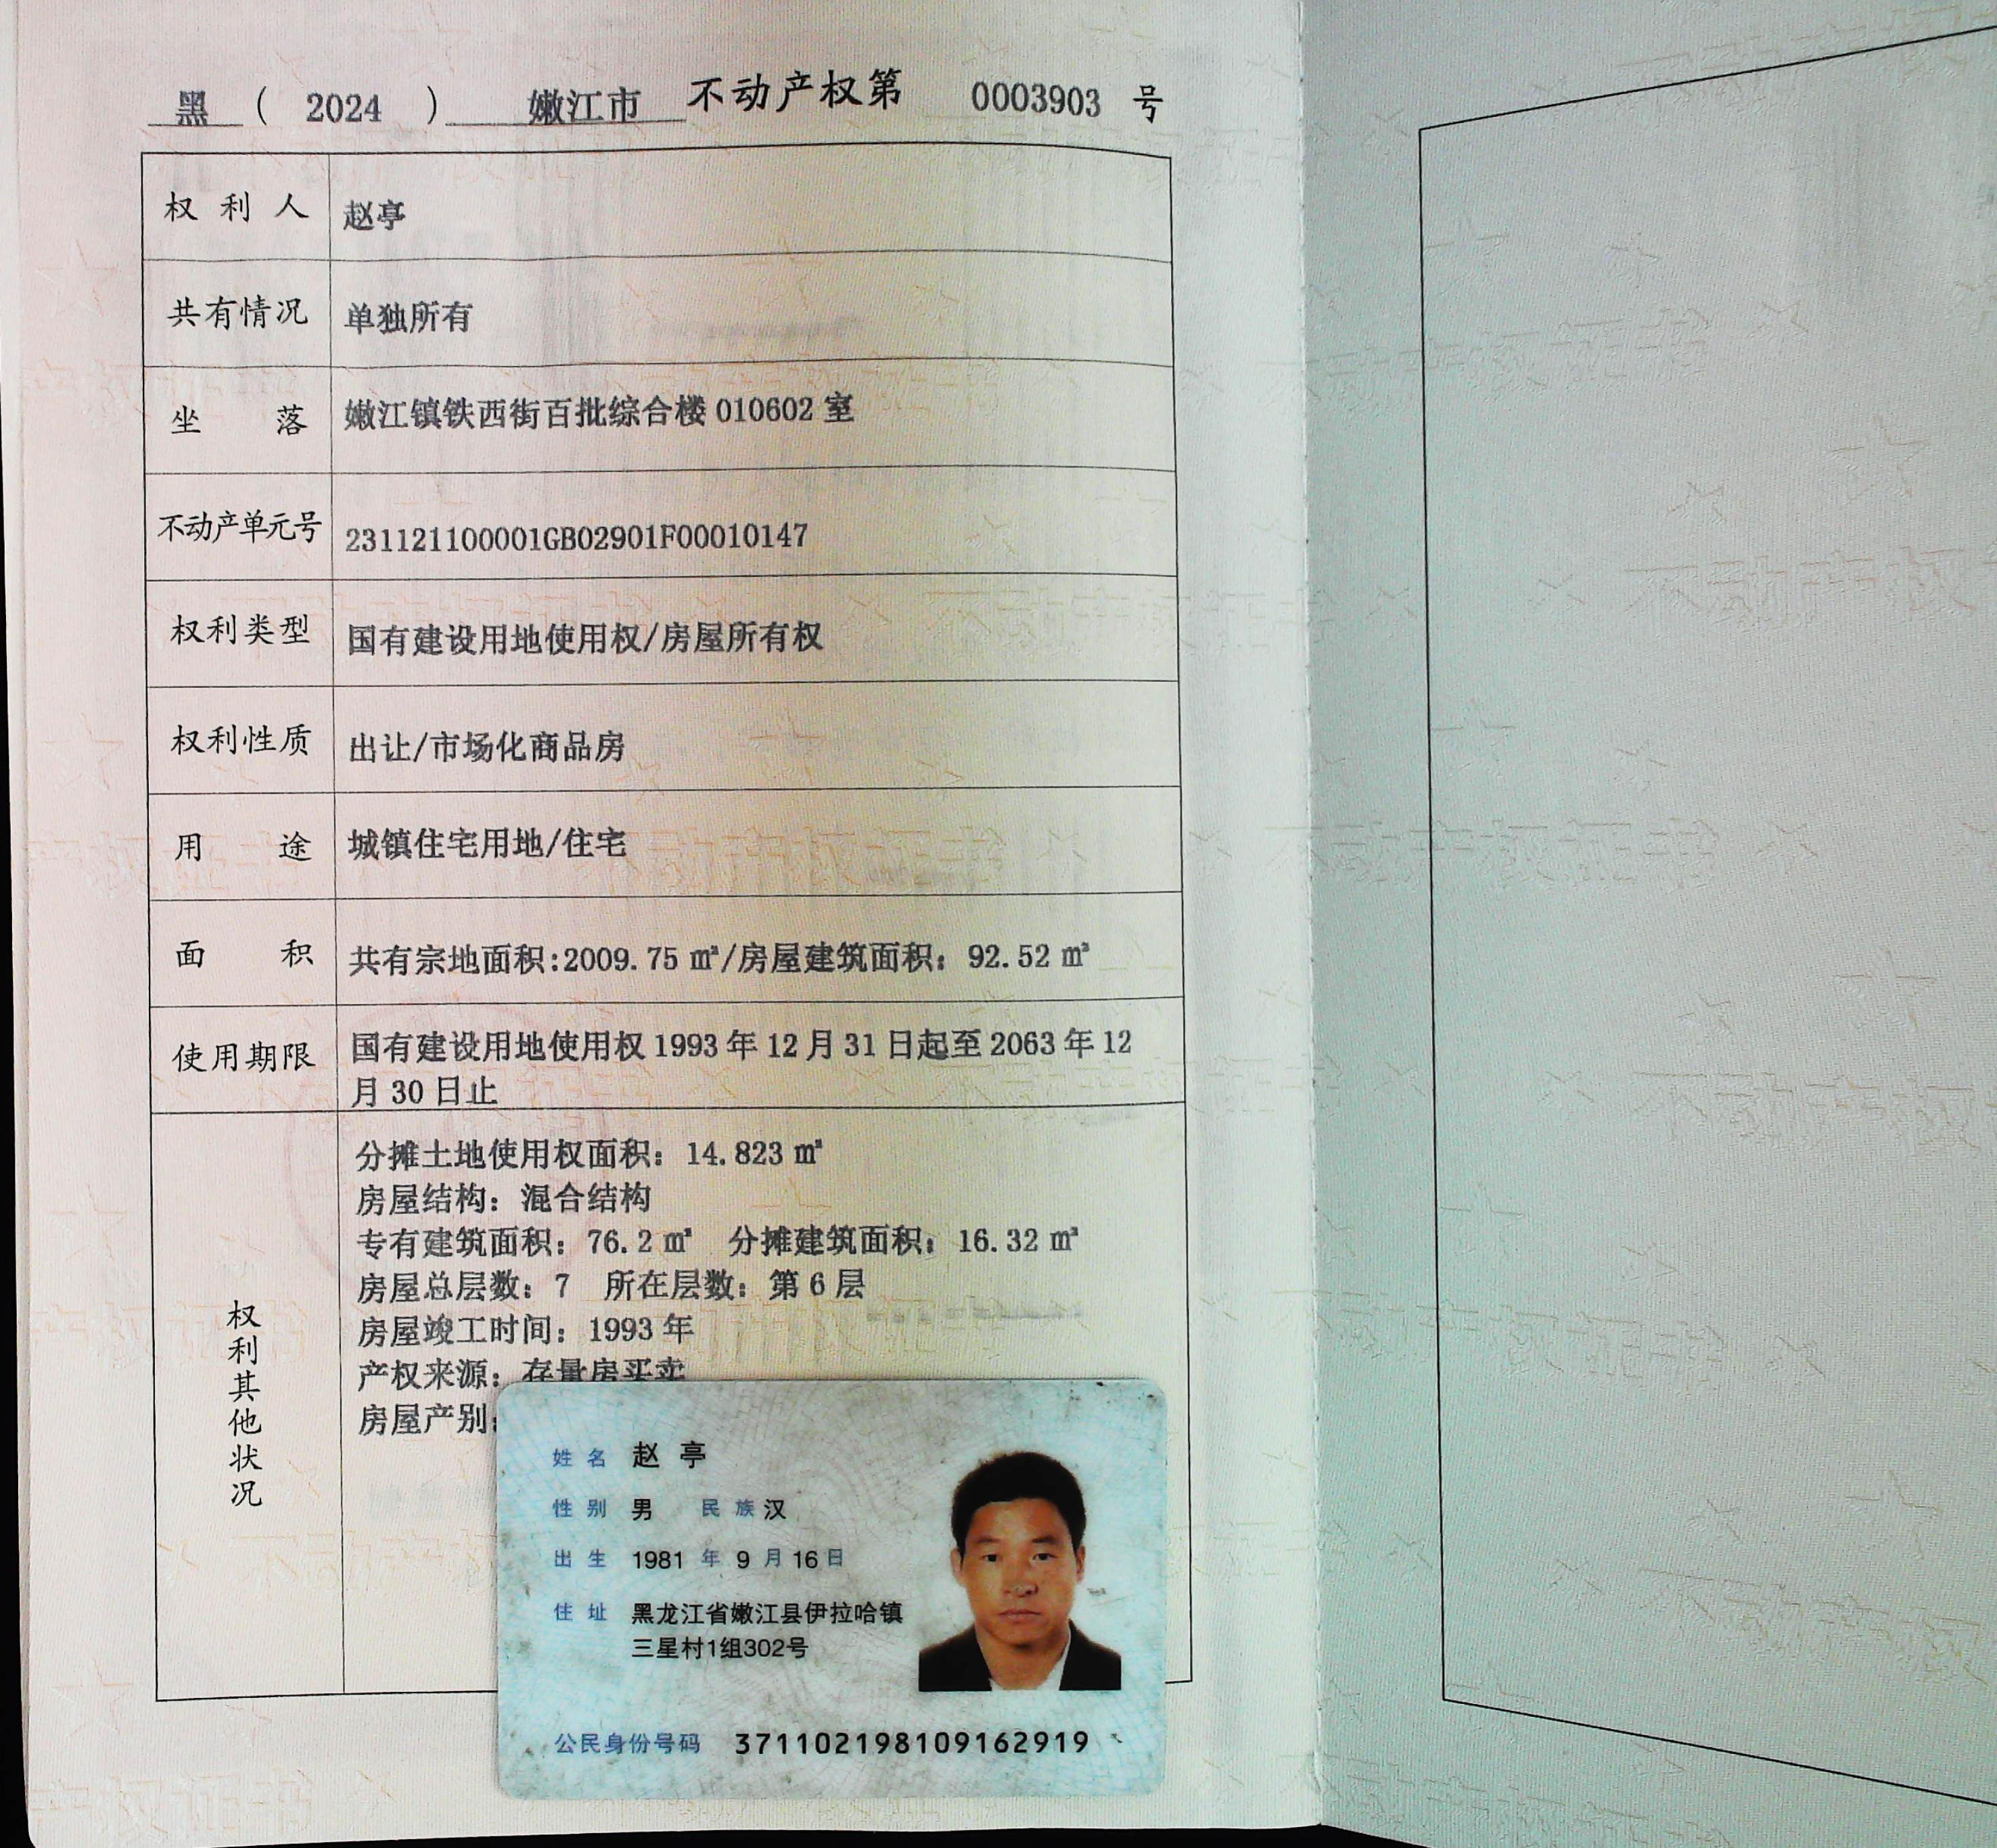 黑 ( 2024 ) 嫩江市 不动产权第 0003903 号
权利人 赵亭
共有情况 单独所有
坐落 嫩江镇铁西街百批综合楼 010602 室
不动产单元号 231121100001GB02901F00010147
权利类型 国有建设用地使用权/房屋所有权
权利性质 出让/市场化商品房
用途 城镇住宅用地/住宅
面积 共有宗地面积:2009.75 ㎡/房屋建筑面积: 92.52 ㎡
使用期限 国有建设用地使用权 1993 年 12 月 31 日起至 2063 年 12
月 30 日止
权利其他状况
分摊土地使用权面积: 14.823 ㎡
房屋结构: 混合结构
专有建筑面积: 76.2 ㎡ 分摊建筑面积: 16.32 ㎡
房屋总层数: 7 所在层数: 第 6 层
房屋竣工时间: 1993 年
产权来源: 存量房买卖
房屋产别:
姓名 赵亭
性别 男 民族 汉
出生 1981 年 9 月 16 日
住址 黑龙江省嫩江县伊拉哈镇
三星村1组302号
公民身份号码 371102198109162919